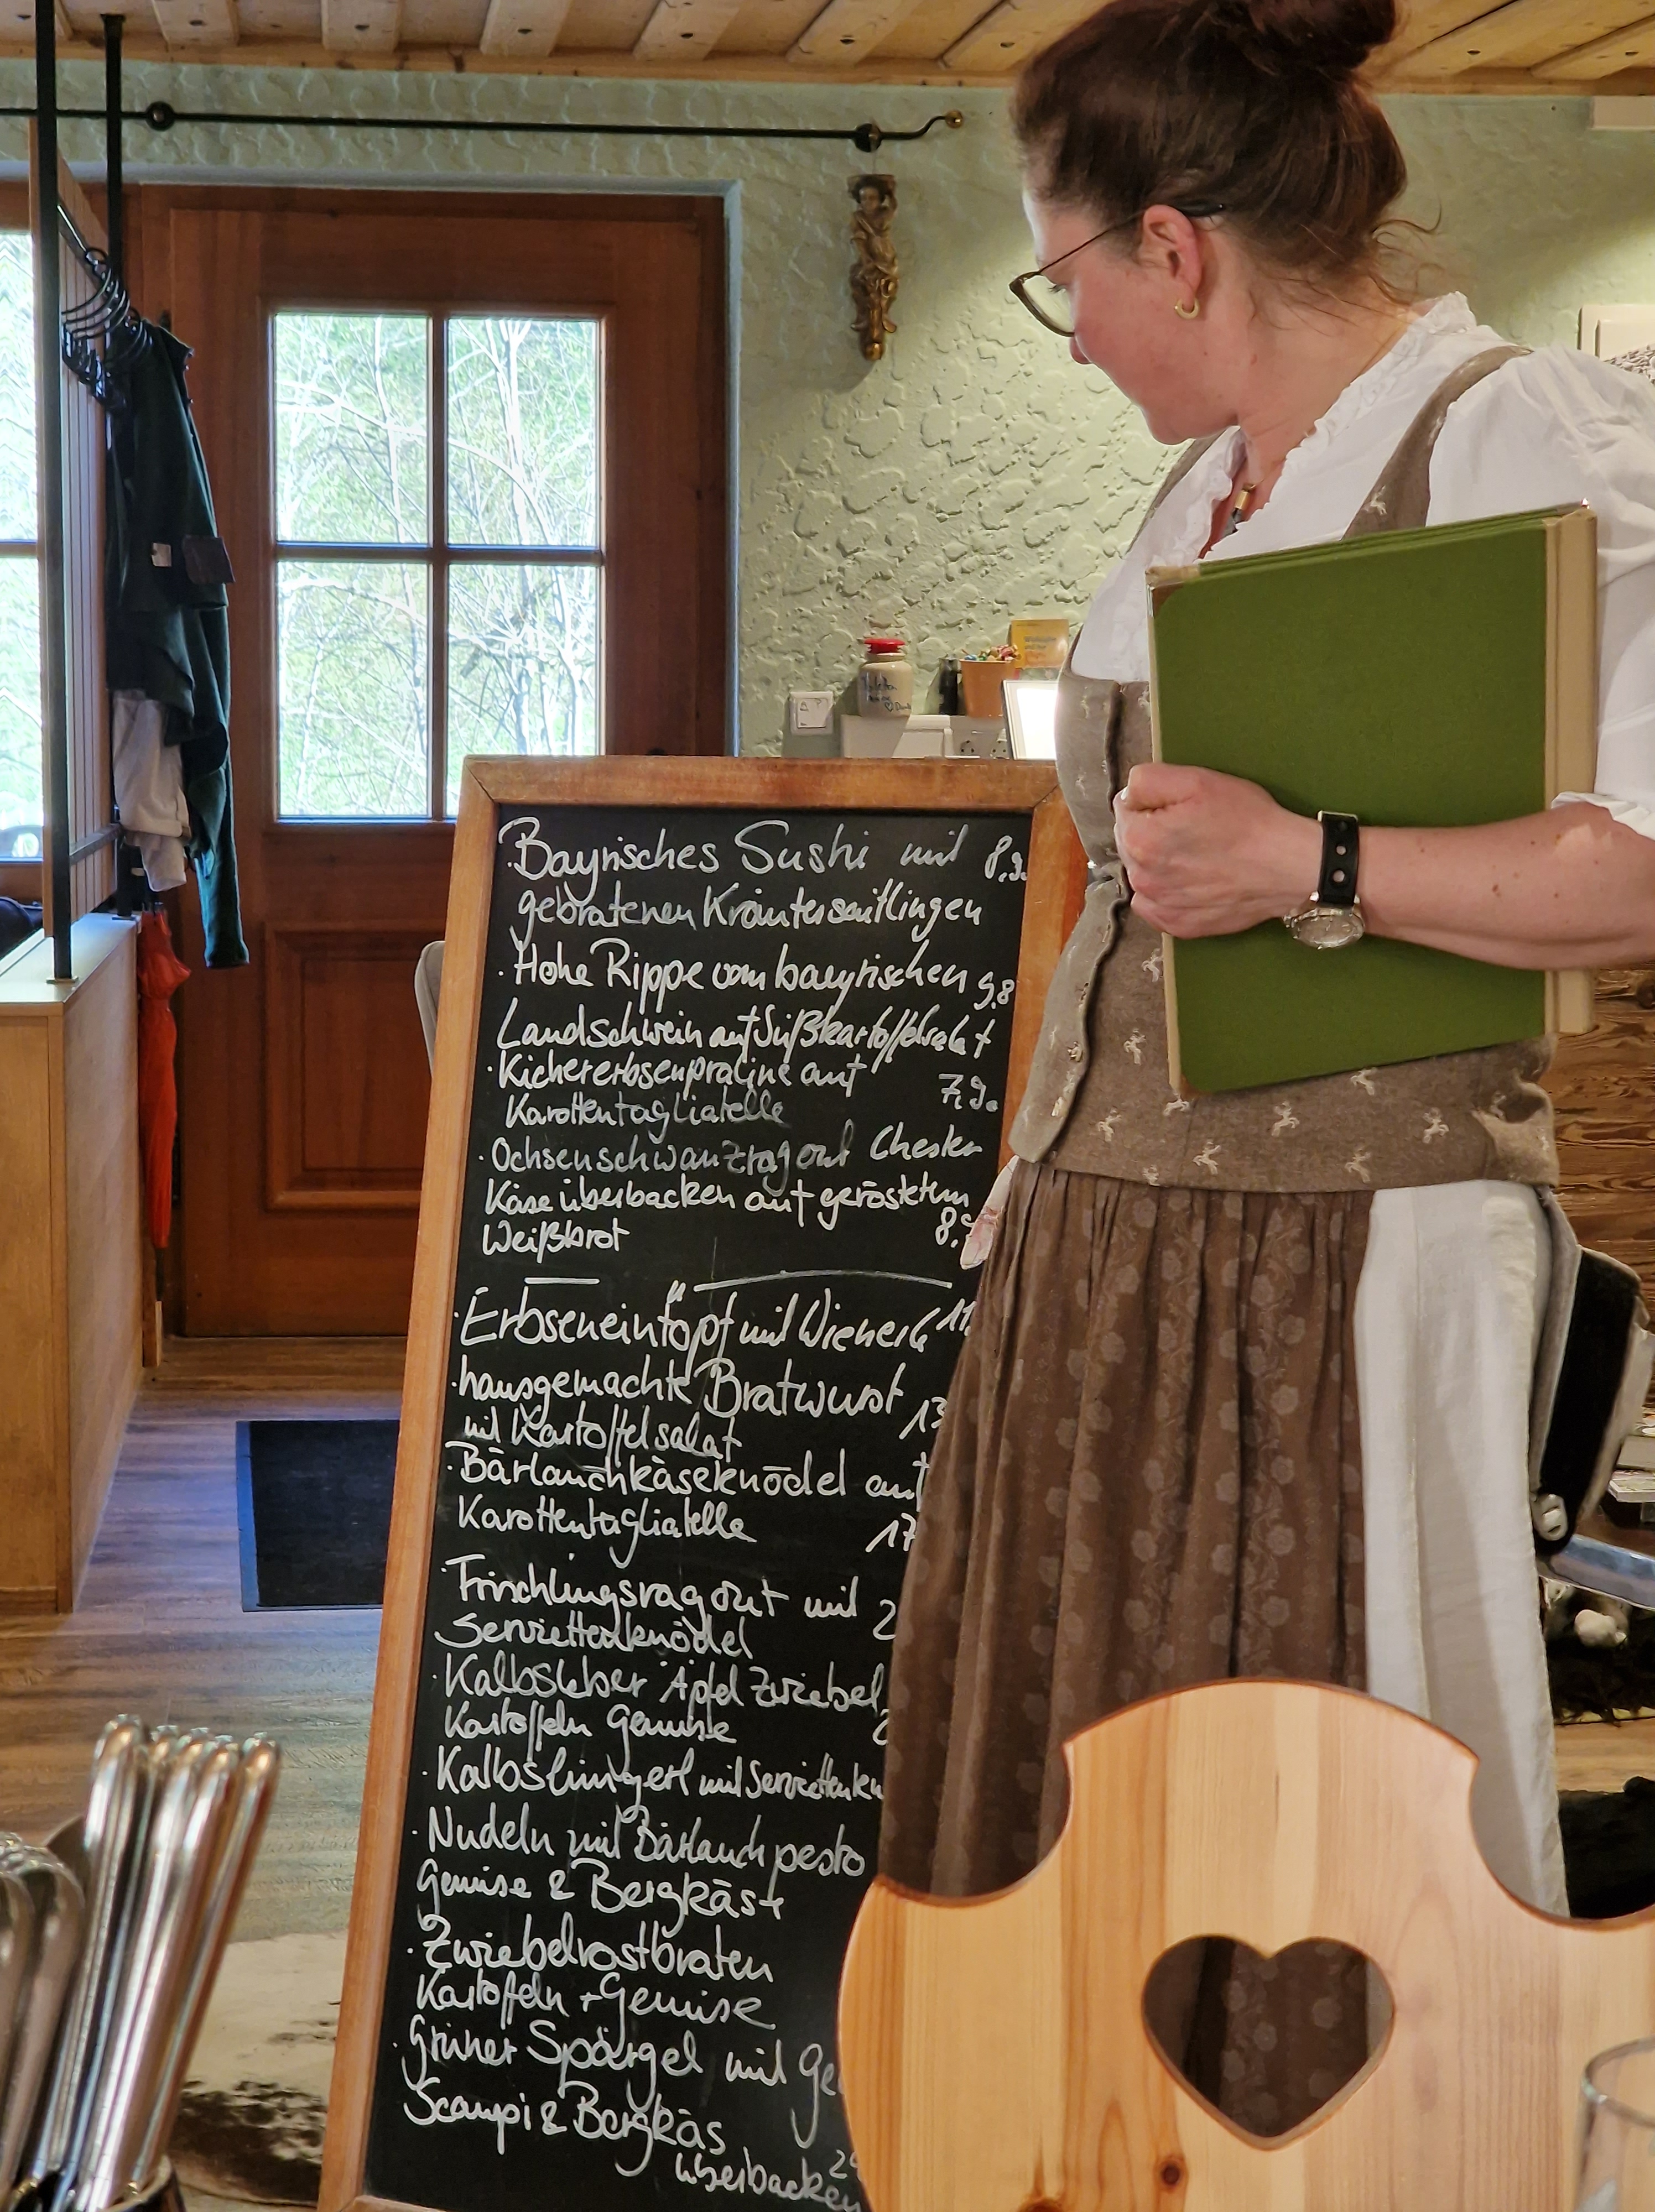 Bayrisches Sushi mit 8,9.
gebratenen Kräutersaitlingen
Hohe Rippe vom bayrischen 9,8
Landschwein auf Süßkartoffelsalat
Kichererbsenpraline auf
Karottentagliatelle 7,9.
Ochsenschwanzragout Chester
Käse überbacken auf geröstetem
Weißbrot 8,9
Erbseneintopf mit Wienerle 11,
hausgemachte Bratwurst
mit Kartoffelsalat 13
Bärlauchkäseknödel auf
Karottentagliatelle 17
Frischlingsragout mit 2
Serviettenknödel
Kalbsleber Äpfel Zwiebel
Kartoffeln Gemüse 2
Kalbslüngerl mit Serviettenkn
Nudeln mit Bärlauchpesto
Gemüse & Bergkäse
Zwiebelrostbraten
Kartoffeln + Gemüse
Grüner Spargel mit Ge
Scampi & Bergkäs
überbacken 2